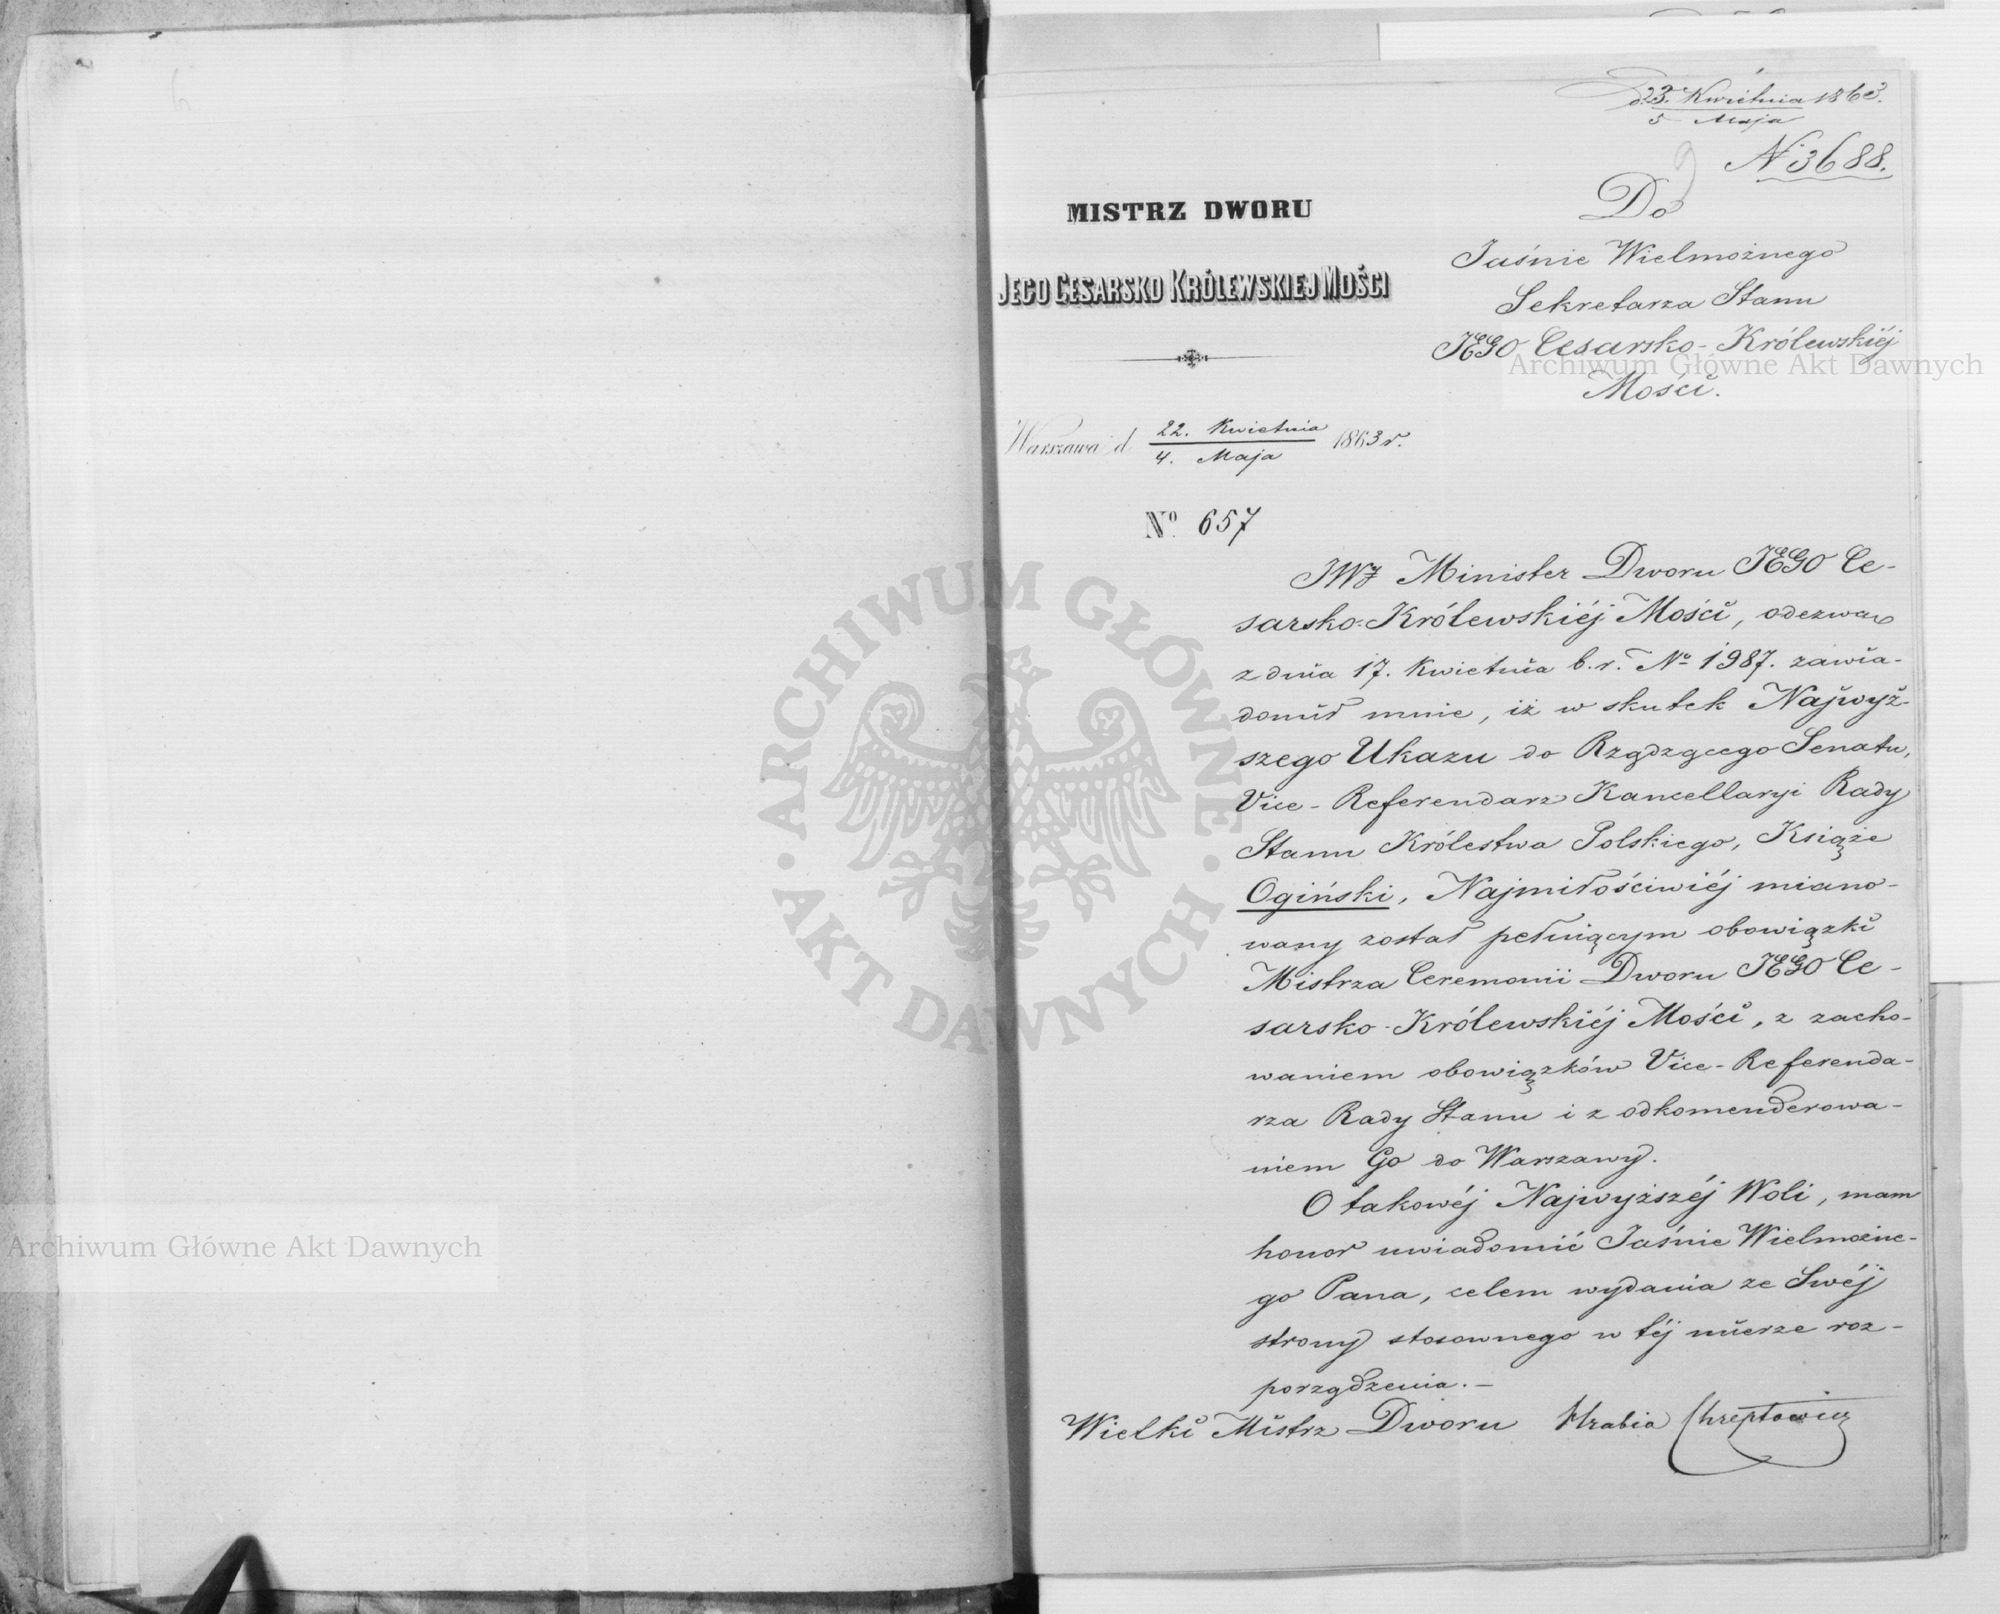 d. 23. Kwietnia 1863.
5 Maja
N 3688.
9
MISTRZ DWORU
JEGO CESARSKO KRÓLEWSKIEJ MOŚCI
Warszawa d 22. Kwietnia 1863 r.
4. Maja
No 657
Do
Jaśnie Wielmożnego
Sekretarza Stanu
JEGO Cesarsko-Królewskiéj
Mości.
JWy Minister Dworu JEGO Ce-
sarsko-Królewskiéj Mości, odezwą
z dnia 17. Kwietnia b. r. No 1987. zawia-
domił mnie, iż w skutek Najwyż-
szego Ukazu do Rządzącego Senatu,
Vice-Referendarz Kancellaryi Rady
Stanu Królestwa Polskiego, Książe
Ogiński, Najmiłościwiéj miano-
wany został pełniącym obowiązki
Mistrza Ceremonii Dworu JEGO Ce-
sarsko-Królewskiéj Mości, z zacho-
waniem obowiązków Vice-Referenda-
rza Rady Stanu i z odkomenderowa-
niem Go do Warszawy.
O takowéj Najwyższéj Woli, mam
honor uwiadomić Jaśnie Wielmożne-
go Pana, celem wydania ze Swéj
strony stosownego w téj mierze roz-
porządzenia.—
Wielki Mistrz Dworu Hrabia Chreptowicz
ARCHIWUM GŁÓWNE · AKT DAWNYCH ·
Archiwum Główne Akt Dawnych
Archiwum Główne Akt Dawnych